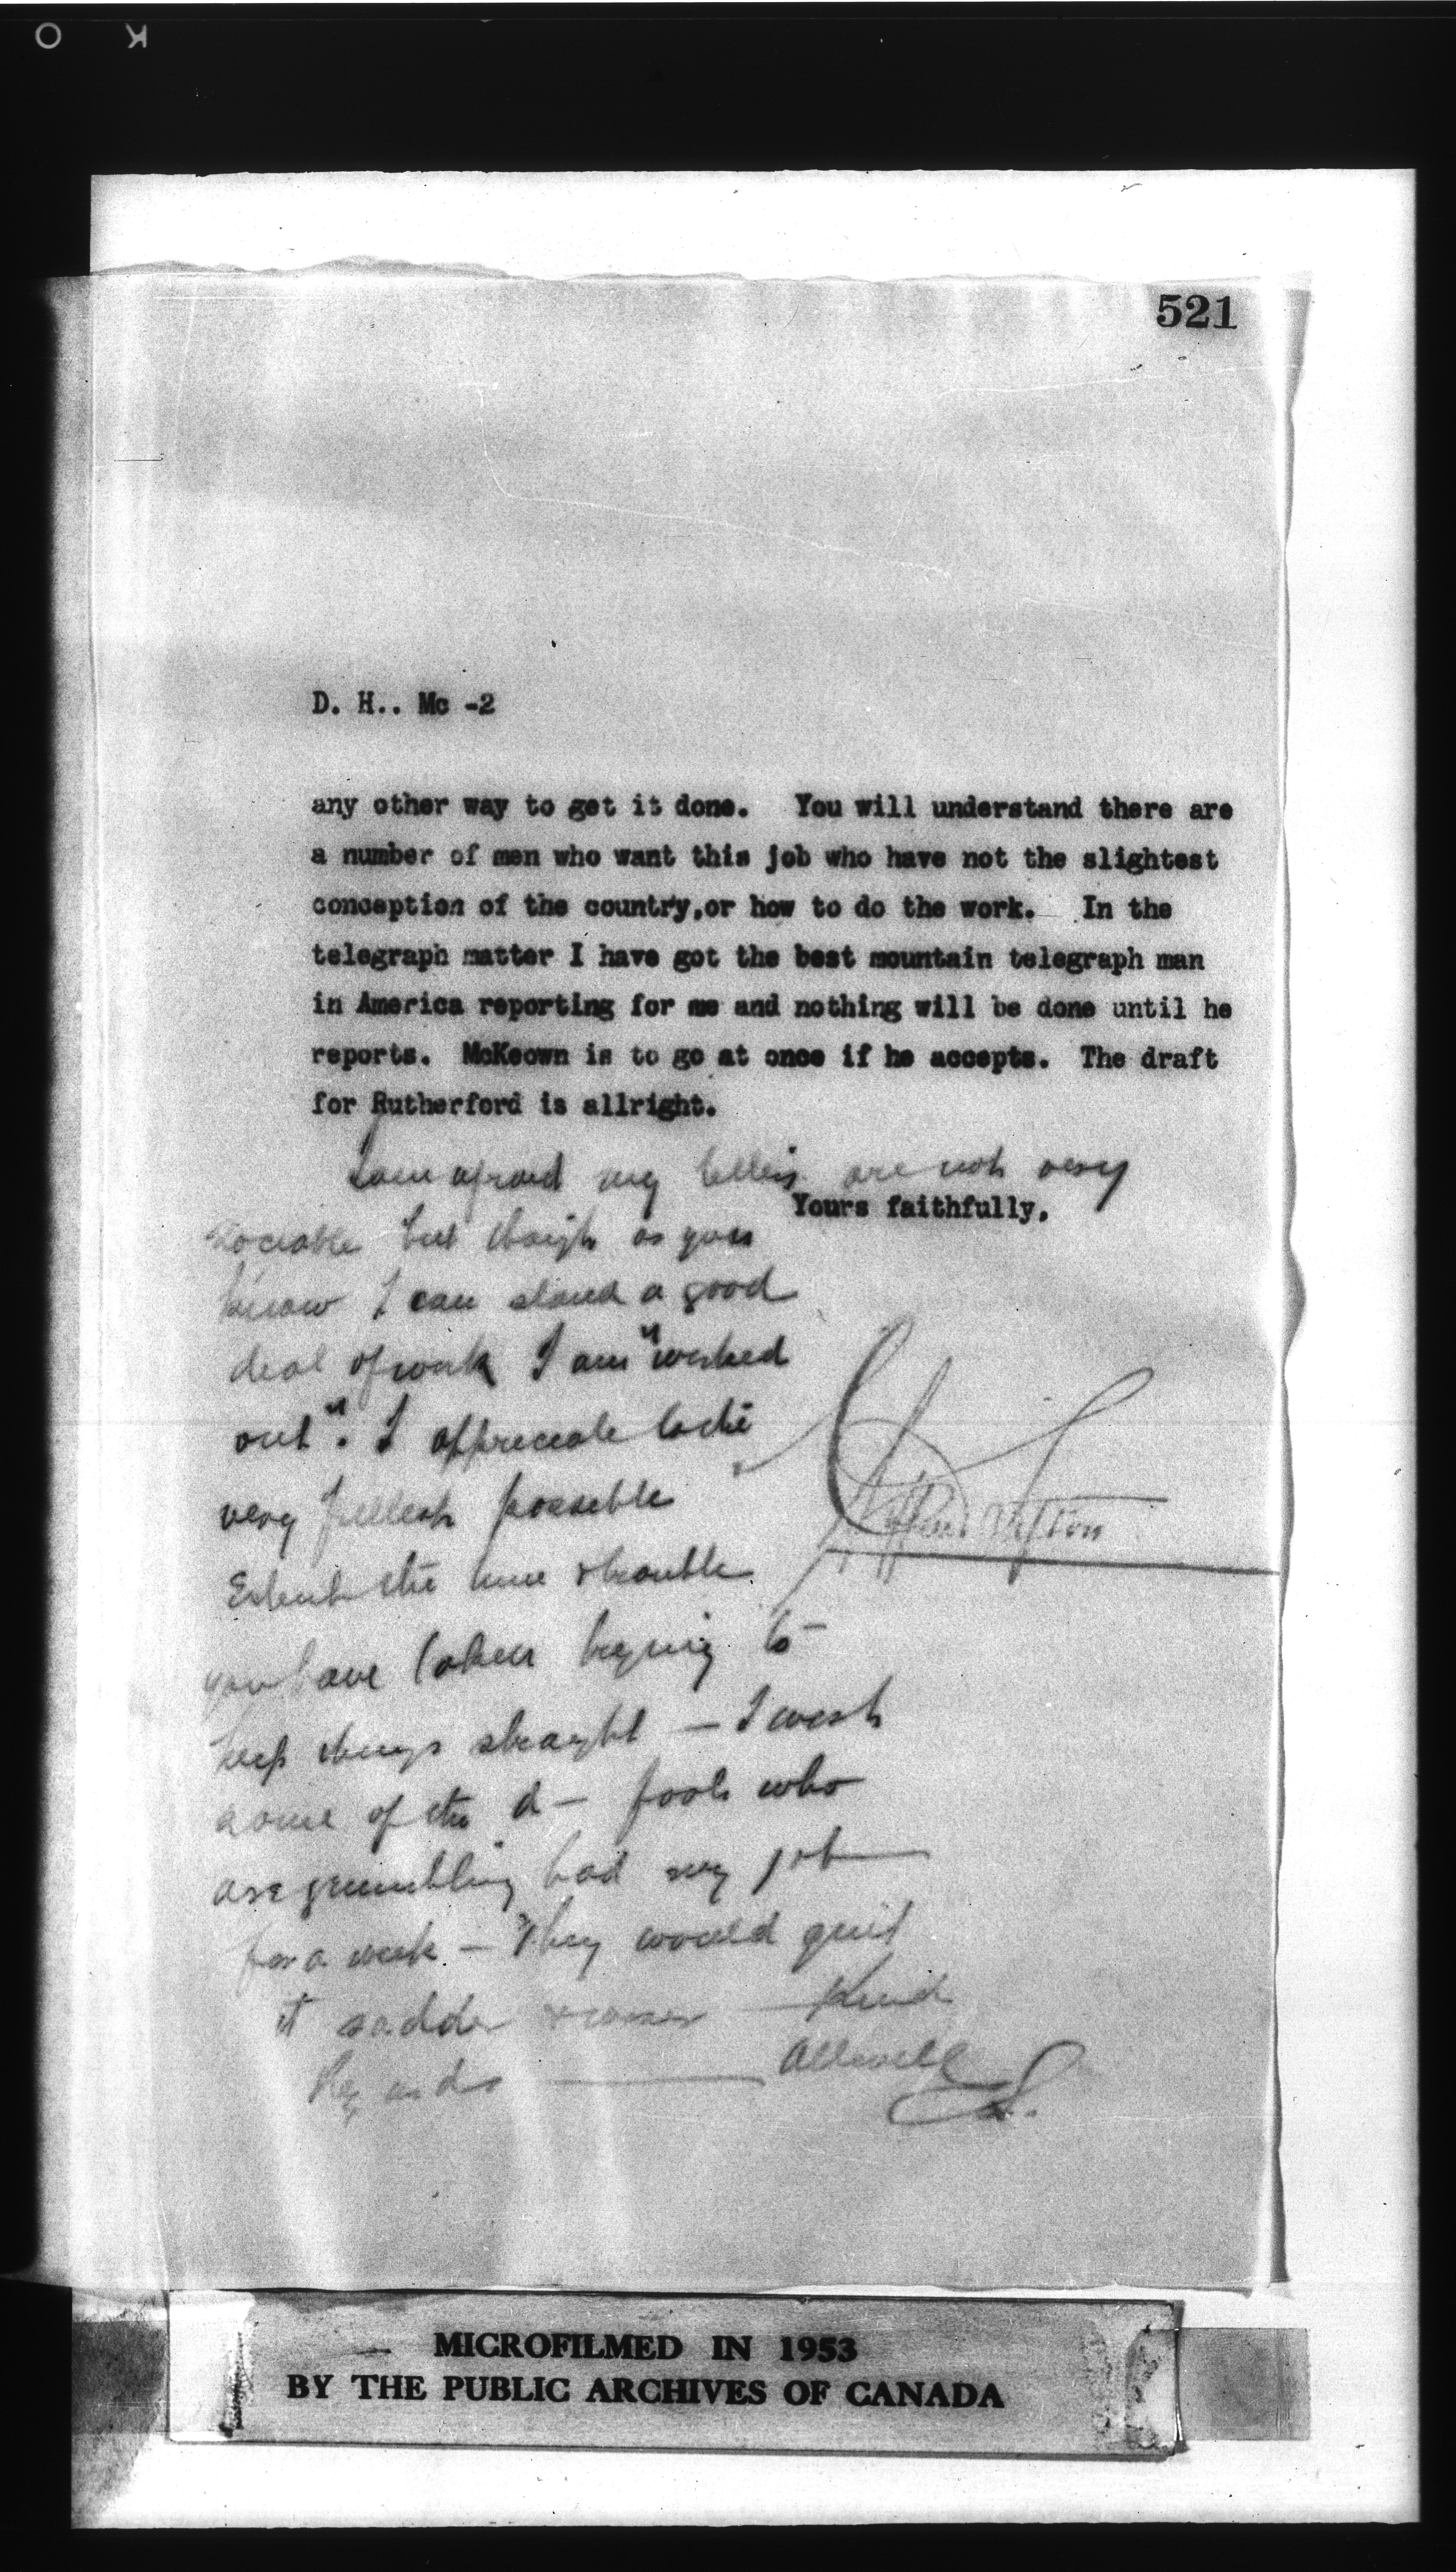 521
D. H.. Mc -2
any other way to get it done. You will understand there are
a number of men who want this job who have not the slightest
conception of the country,or how to do the work. In the
telegraph matter I have got the best mountain telegraph man
in America reporting for me and nothing will be done until he
reports. McKeown is to go at once if he accepts. The draft
for Rutherford is allright.
I am afraid my letters are not very
Yours faithfully,
sociable but though as you
know I can stand a good
deal of work I am "worked
out". I appreciate to the
very fullest possible
Extent the time & trouble
you have taken trying to
keep things straight — I wish
some of the d— fools who
are grumbling had my job
for a week — They would quit
it sadder & wiser — Kind
Regards —
Clifford Sifton
S.
MICROFILMED IN 1953
BY THE PUBLIC ARCHIVES OF CANADA